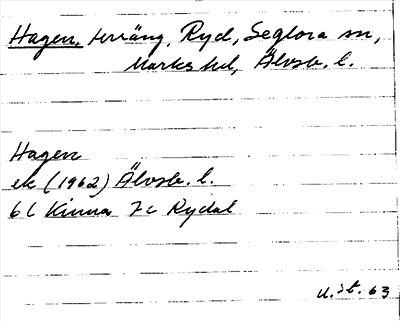 Hagen, terräng, Ryd, Seglora sn,
Marks hd, Älvsb. l.
Hagen
ek (1962) Älvsb. l.
6C Kinna 7c Rydal
U. st. 63